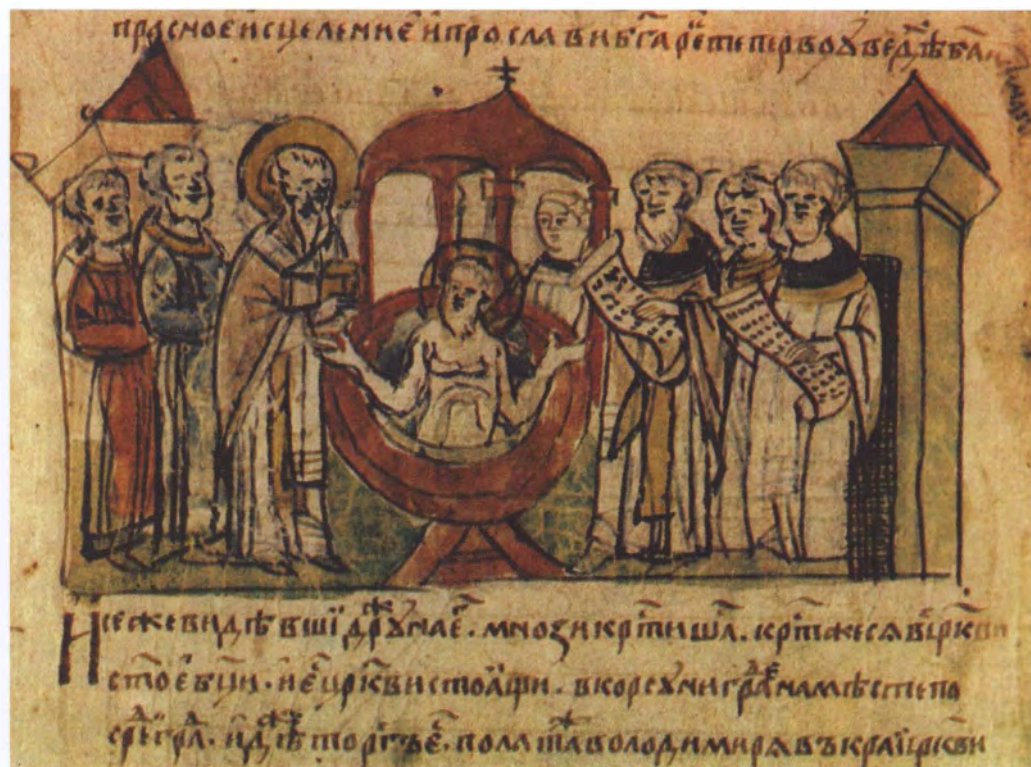 прасное исцеление и прослави б҃га рє҃ те перво ꙋведѣ б҃а
И се же видѣвши дрꙋⷤна е҃ . мнози кр҃тишѧ . кр҃т же сѧ в цр҃кви
ст҃ое б҃ци . и е҃ цр҃кви стоащи . в корсꙋни граⷣ на мѣсте по
среⷣ граⷣ . идѣⷤ торгъ е҃ . полатаⷤ володимирѧ въ краи цр҃кви